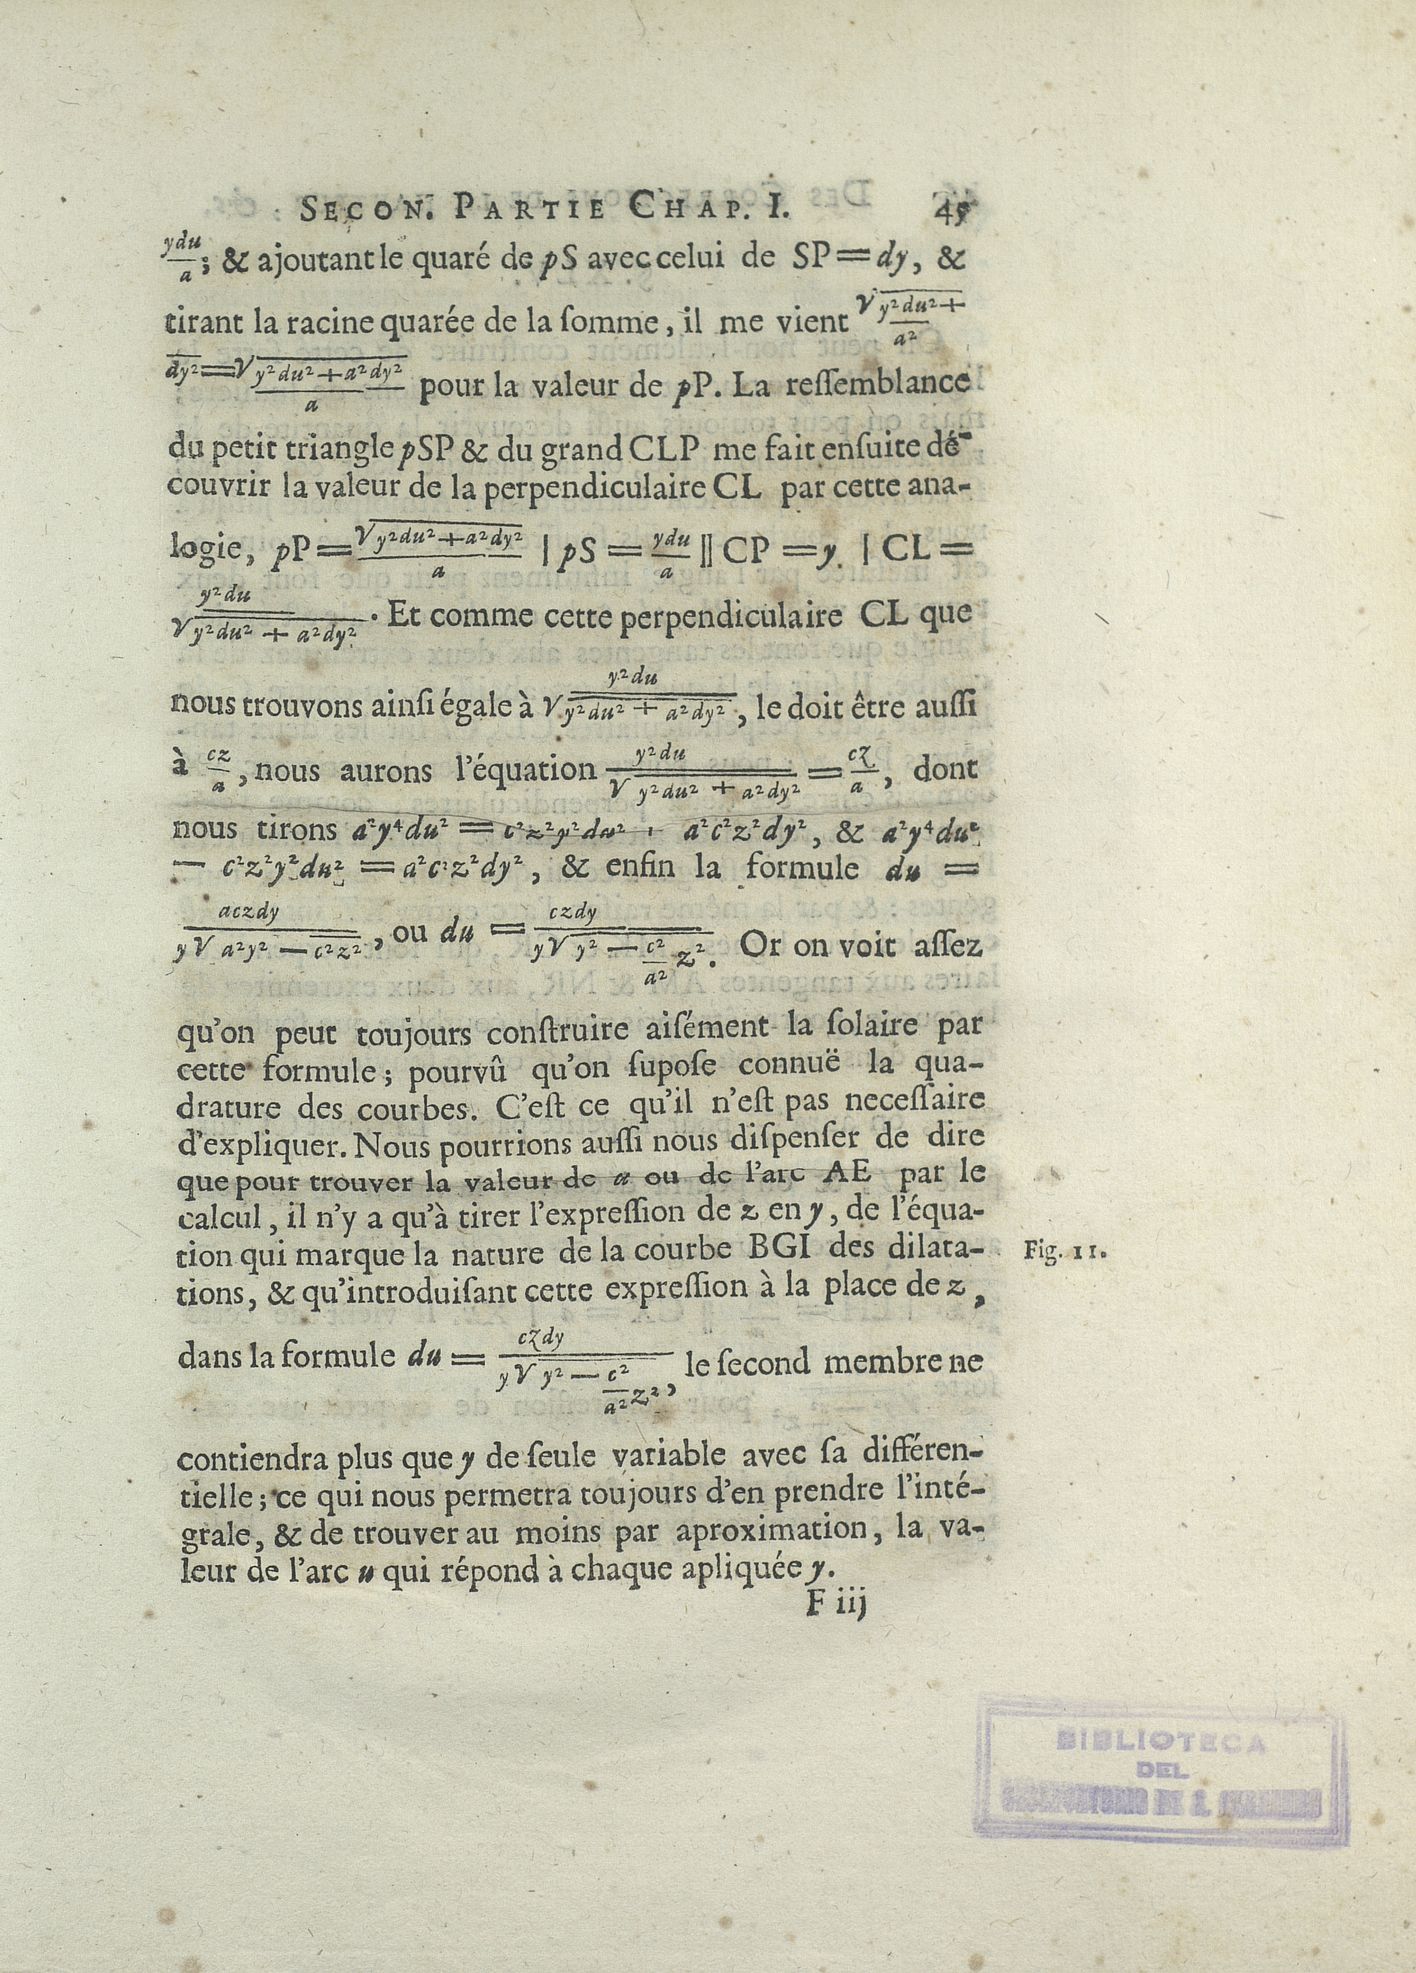 SECON. PARTIE CHAP. I. 45
ydu/a ; & ajoutant le quaré de pS avec celui de SP = dy, &
tirant la racine quarée de la ſomme, il me vient √y²du²/a² +
dy² = √y²du² + a²dy²/a pour la valeur de pP. La reſſemblance
du petit triangle pSP & du grand CLP me fait enſuite dé-
couvrir la valeur de la perpendiculaire CL par cette ana-
logie, pP = √y²du² + a²dy²/a | pS = ydu/a || CP = y. | CL =
y²du/√y²du² + a²dy². Et comme cette perpendiculaire CL que
nous trouvons ainſi égale à y²du/√y²du² + a²dy², le doit être auſſi
à cz/a, nous aurons l'équation y²du/√y²du² + a²dy² = cz/a, dont
nous tirons a²y⁴du² = c²z²y²du² + a²c²z²dy², & a²y⁴du²
— c²z²y²du² = a²c²z²dy², & enfin la formule du =
aczdy/y√a²y² — c²z², ou du = czdy/y√y² — c²/a² z². Or on voit aſſez
qu'on peut toujours conſtruire aiſément la ſolaire par
cette formule; pourvû qu'on ſupoſe connuë la qua-
drature des courbes. C'eſt ce qu'il n'eſt pas neceſſaire
d'expliquer. Nous pourrions auſſi nous diſpenſer de dire
que pour trouver la valeur de u ou de l'arc AE par le
calcul, il n'y a qu'à tirer l'expreſſion de z en y, de l'équa-
tion qui marque la nature de la courbe BGI des dilata-
Fig. 11.
tions, & qu'introduiſant cette expreſſion à la place de z,
dans la formule du = czdy/y√y² — c²/a² z², le ſecond membre ne
contiendra plus que y de ſeule variable avec ſa différen-
tielle; ce qui nous permetra toujours d'en prendre l'inté-
grale, & de trouver au moins par aproximation, la va-
leur de l'arc u qui répond à chaque apliquée y.
F iij
BIBLIOTECA
DEL
OBSERVATORIO DE S. FERNANDO